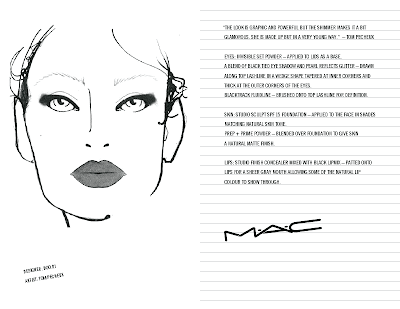 "THE LOOK IS GRAPHIC AND POWERFUL BUT THE SHIMMER MAKES IT A BIT
GLAMOROUS. SHE IS MADE UP BUT IN A VERY YOUNG WAY." – TOM PECHEUX
EYES: INVISIBLE SET POWDER – APPLIED TO LIDS AS A BASE.
A BLEND OF BLACK TIED EYE SHADOW AND PEARL REFLECTS GLITTER – DRAWN
ALONG TOP LASHLINE IN A WEDGE SHAPE TAPERED AT INNER CORNERS AND
THICK AT THE OUTER CORNERS OF THE EYES.
BLACKTRACK FLUIDLINE – BRUSHED ONTO TOP LASHLINE FOR DEFINITION.
SKIN: STUDIO SCULPT SPF 15 FOUNDATION – APPLIED TO THE FACE IN SHADES
MATCHING NATURAL SKIN TONE.
PREP + PRIME POWDER – BLENDED OVER FOUNDATION TO GIVE SKIN
A NATURAL MATTE FINISH.
LIPS: STUDIO FINISH CONCEALER MIXED WITH BLACK LIPMIX – PATTED ONTO
LIPS FOR A SHEER GRAY MOUTH ALLOWING SOME OF THE NATURAL LIP
COLOUR TO SHOW THROUGH.
M·A·C
DESIGNER:
ARTIST: TOM PECHEUX